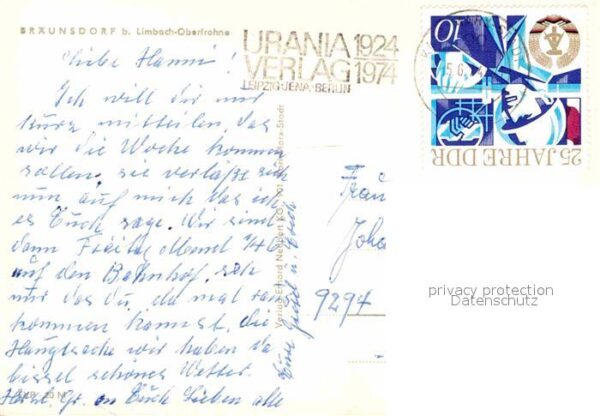 BRÄUNSDORF b. Limbach-Oberfrohna
Liebe Hanni!
Ich will dir nur
kurz mitteilen, das
wir die Woche kommen
sollen. sie verläßt sich
nun auf mich das ich
es Euch sage. Wir sind
dann Freitag Abend 1/46
auf den Bahnhof.
nur das du da mal ran
kommen kannst, die
Hauptsache wir haben da
bissel schönes Wetter.
Herzl. Gr. an Euch Lieben alle
Eure Gretel u. Erich
Verlag Erhard Neubert KG,
URANIA 1924
VERLAG 1974
LEIPZIG·JENA·BERLIN
10
25 JAHRE DDR
Frau
Joha
9294
privacy protection
Datenschutz